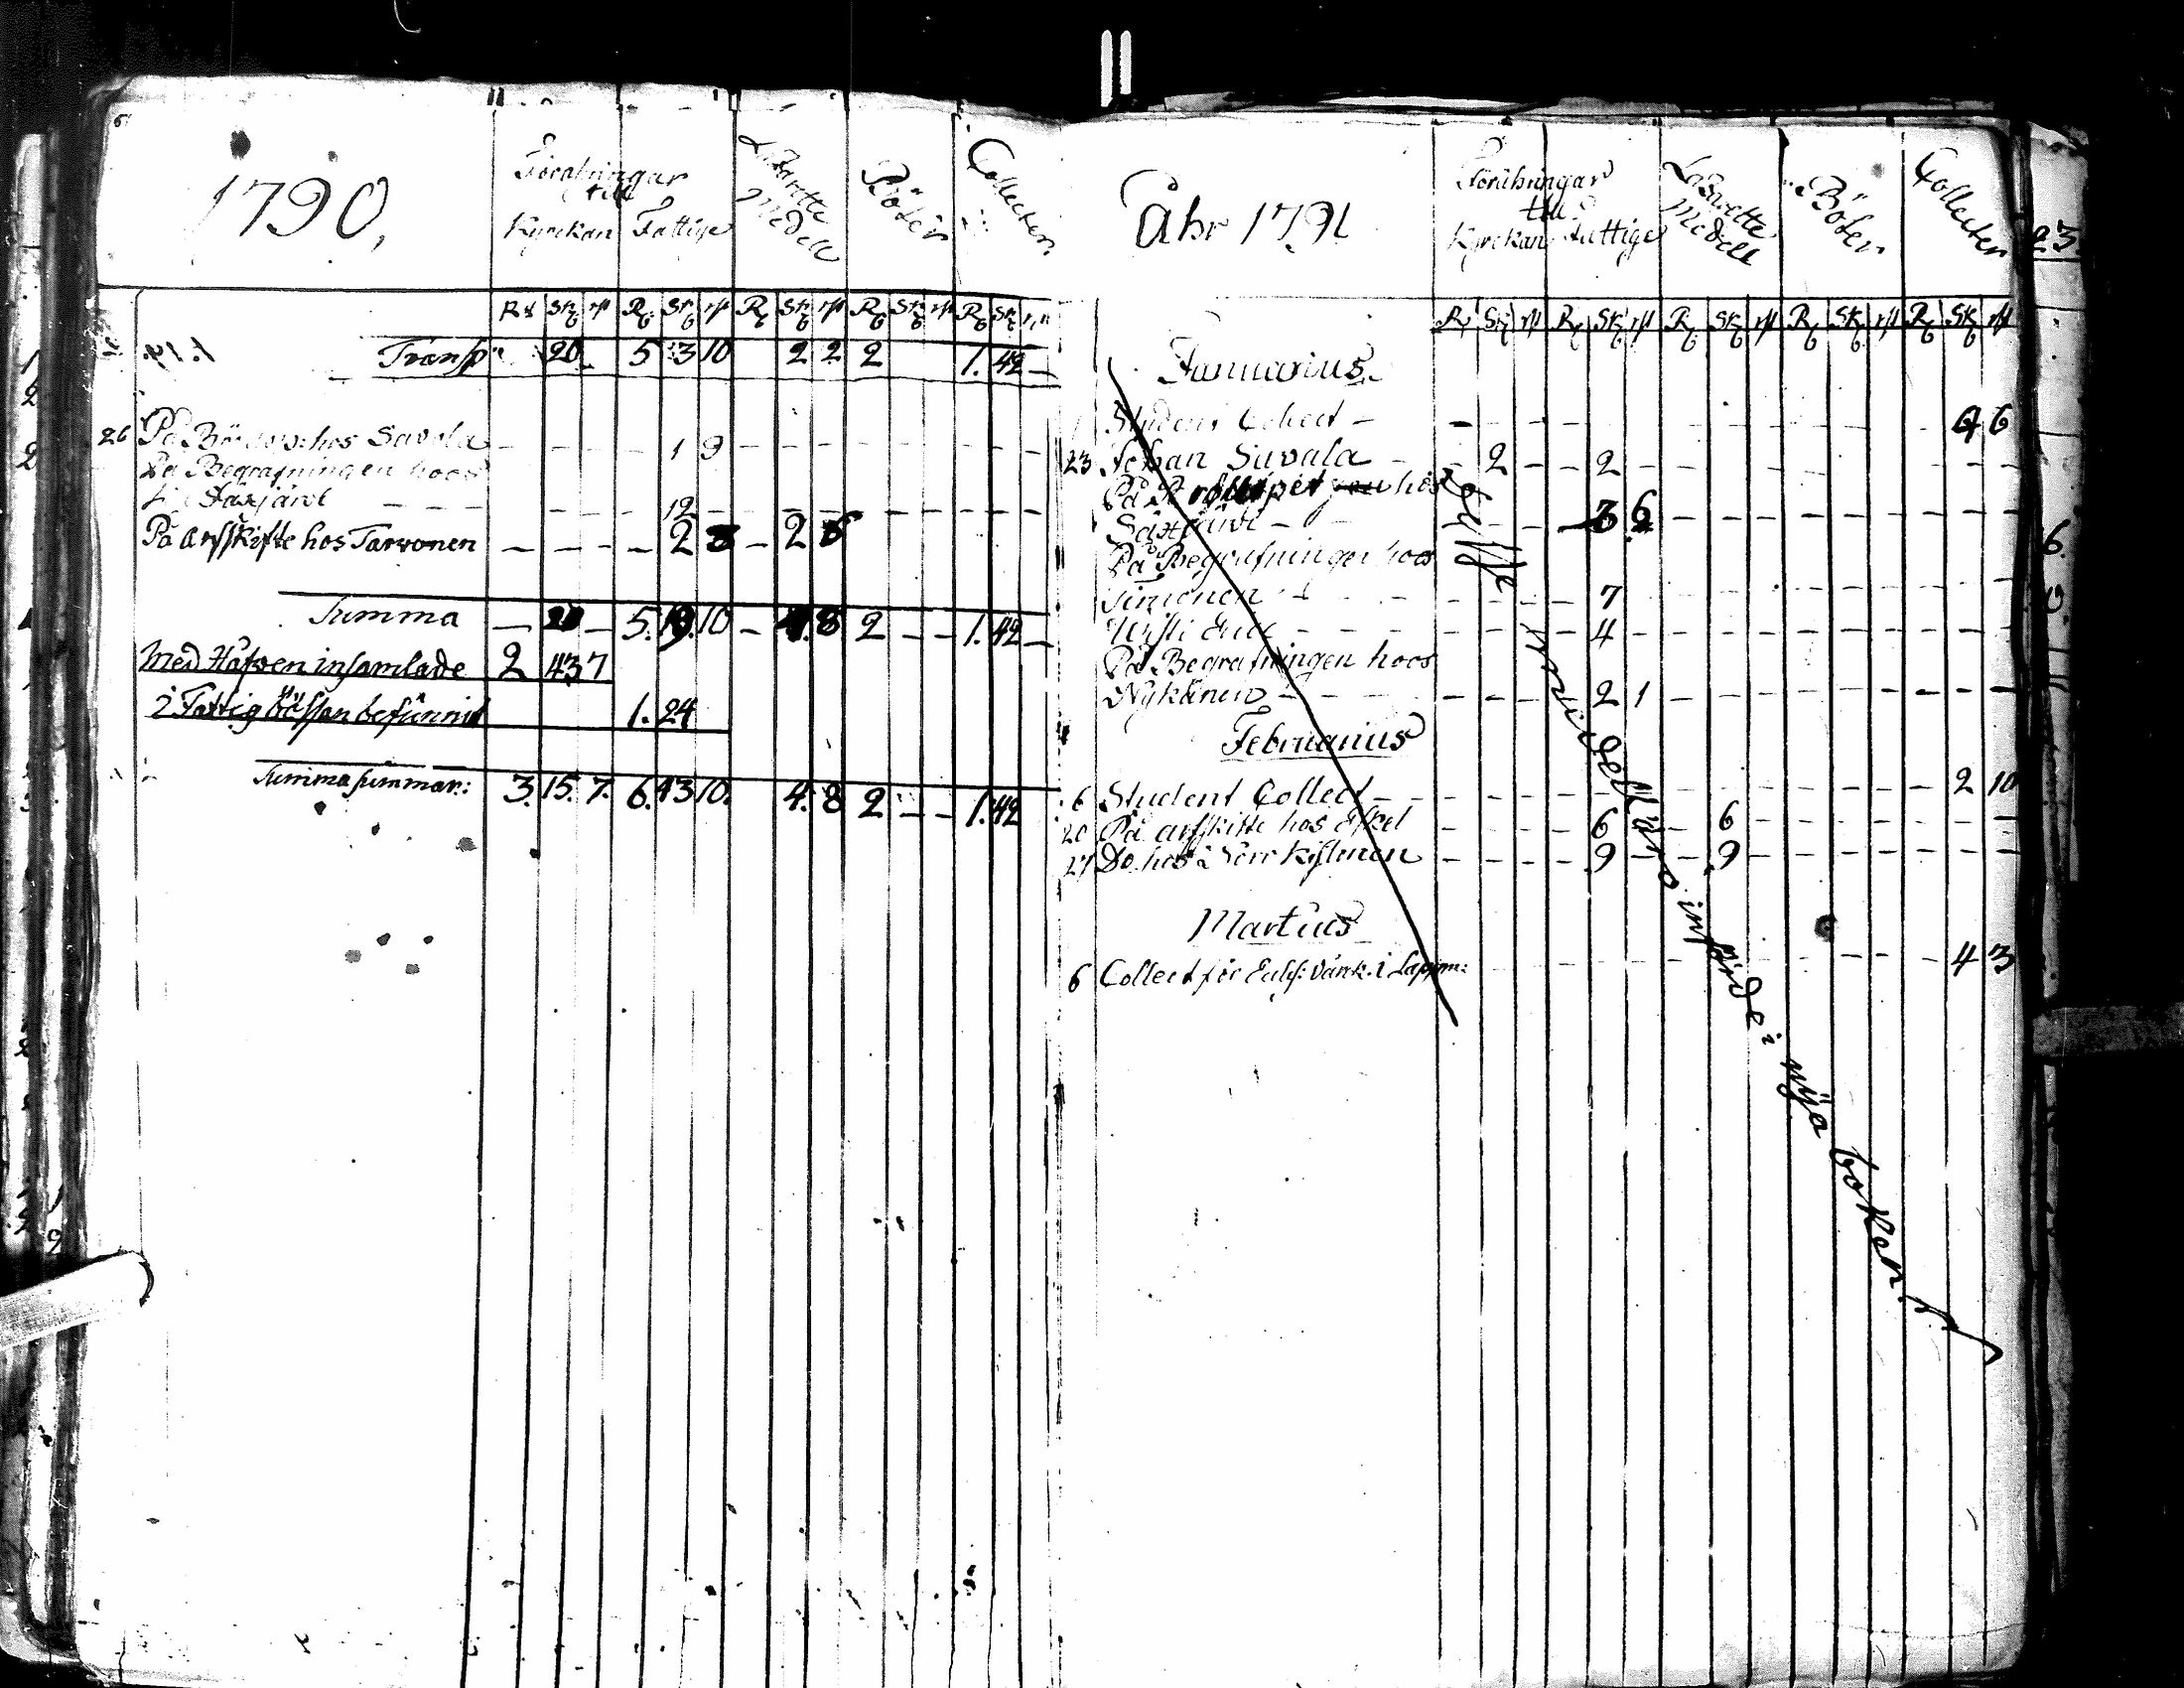 1790,
Förähringar
till
Kyrckan Fattige
Lazarette
Medell
Böter
Collecter
Rd Sk rst R Sk rst R Sk rst R Sk rst R Sk rst
Transp 20 – 5 3 10 2 2 2 1. 42 –
26 På hos Savola – – – – 1 9 – – – – – – – –
På Begrafningen hoos
– – – – 12 – – – – – – – – –
På arfskifte hos Tarvonen – – – – 2 – 2
Summa – – 5. 19. 10 – 4. 8 2 – – 1. 42 –
Med Håfven insamlade 2 43 7
i Fattig bössan befunnit 1. 24
Summa summar: 3. 15. 7. 6. 43 10. 4. 8 2 – – 1. 42
Åhr 1791
Förähringar
till
Kyrckan Fattige
Lazarette
Medell
Böter
Collecter
R Sk rst R Sk rst R Sk rst R Sk rst R Sk rst
Januarius
Student Collect – 6
23 Johan Savola – 2 – – 2 – – – –
På hos
3 6
På Begrafningen hoos
– – – – 7 – – – –
– – – – 4 – – – –
På Begrafningen hoos
Nykänen – – – – 2 1 – – – –
Februarius
6 Student Collect – – – – 2 10
20 På arfskifte hos Eskel – – – – 6 – – 6 – – – –
27 Do hos – – – – 9 – – 9 – – – –
Martius
6 Collect för i Lappm: – – – – 4 3
Desse
medel
införde i nya boken.